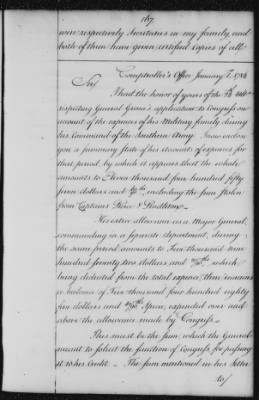 167
were respectively Secretaries in my family, and
both of them have given certified Copies of all
Comptroller's Office January 1784
Sir
I had the honor of yours of the
respecting General Greene's application to Congress on
account of the expences of his Military family during
his Command of the Southern Army I now enclose
you a summary state of his accounts of expences for
that period, by which it appears that the whole
amounts to Eleven thousand four hundred fifty
five dollars and including the sum stolen
from Captains Pierce & Pendleton.
His extra allowance as a Major General,
commanding in a seperate department, during
the same period amounts to Five thousand nine
hundred seventy two dollars and which
being deducted from the total expence, there remains
a balance of Five thousand four hundred eighty
five dollars and Specie, expended over and
above the allowance made by Congress.
This must be the sum, which the General
meant to solicit the sanction of Congress for passing
it to his Credit. The sum mentioned in his Letter